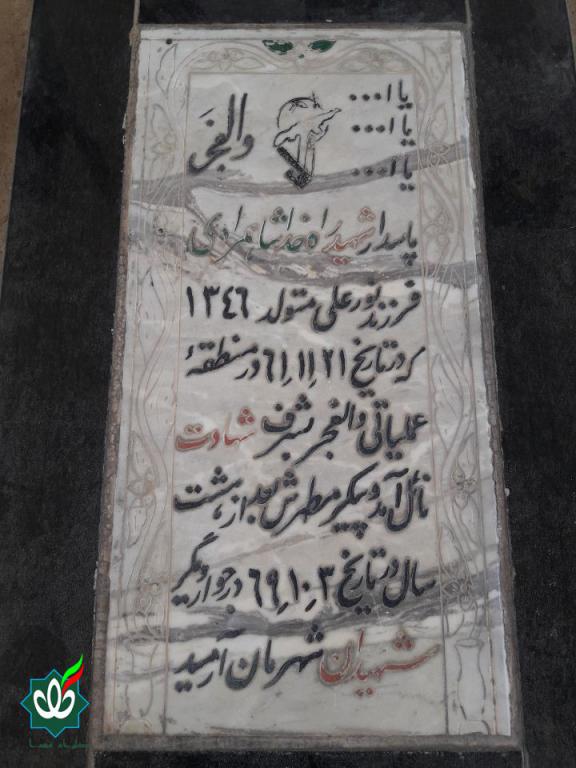 یا ا...
یا ا...
یا ا...
والفجر
پاسدار شهید راه خدا شاهمرادی
فرزند نورعلی متولد ۱۳۴۶
که در تاریخ ۶۱٫۱۱٫۲۱ در منطقهٔ
عملیاتی والفجر بشرف شهادت
نائل آمد و پیکر مطهرش بعد از هشت
سال در تاریخ ۶۹٫۱۰٫۳ در جوار دیگر
شهیدان شهرمان آرمید